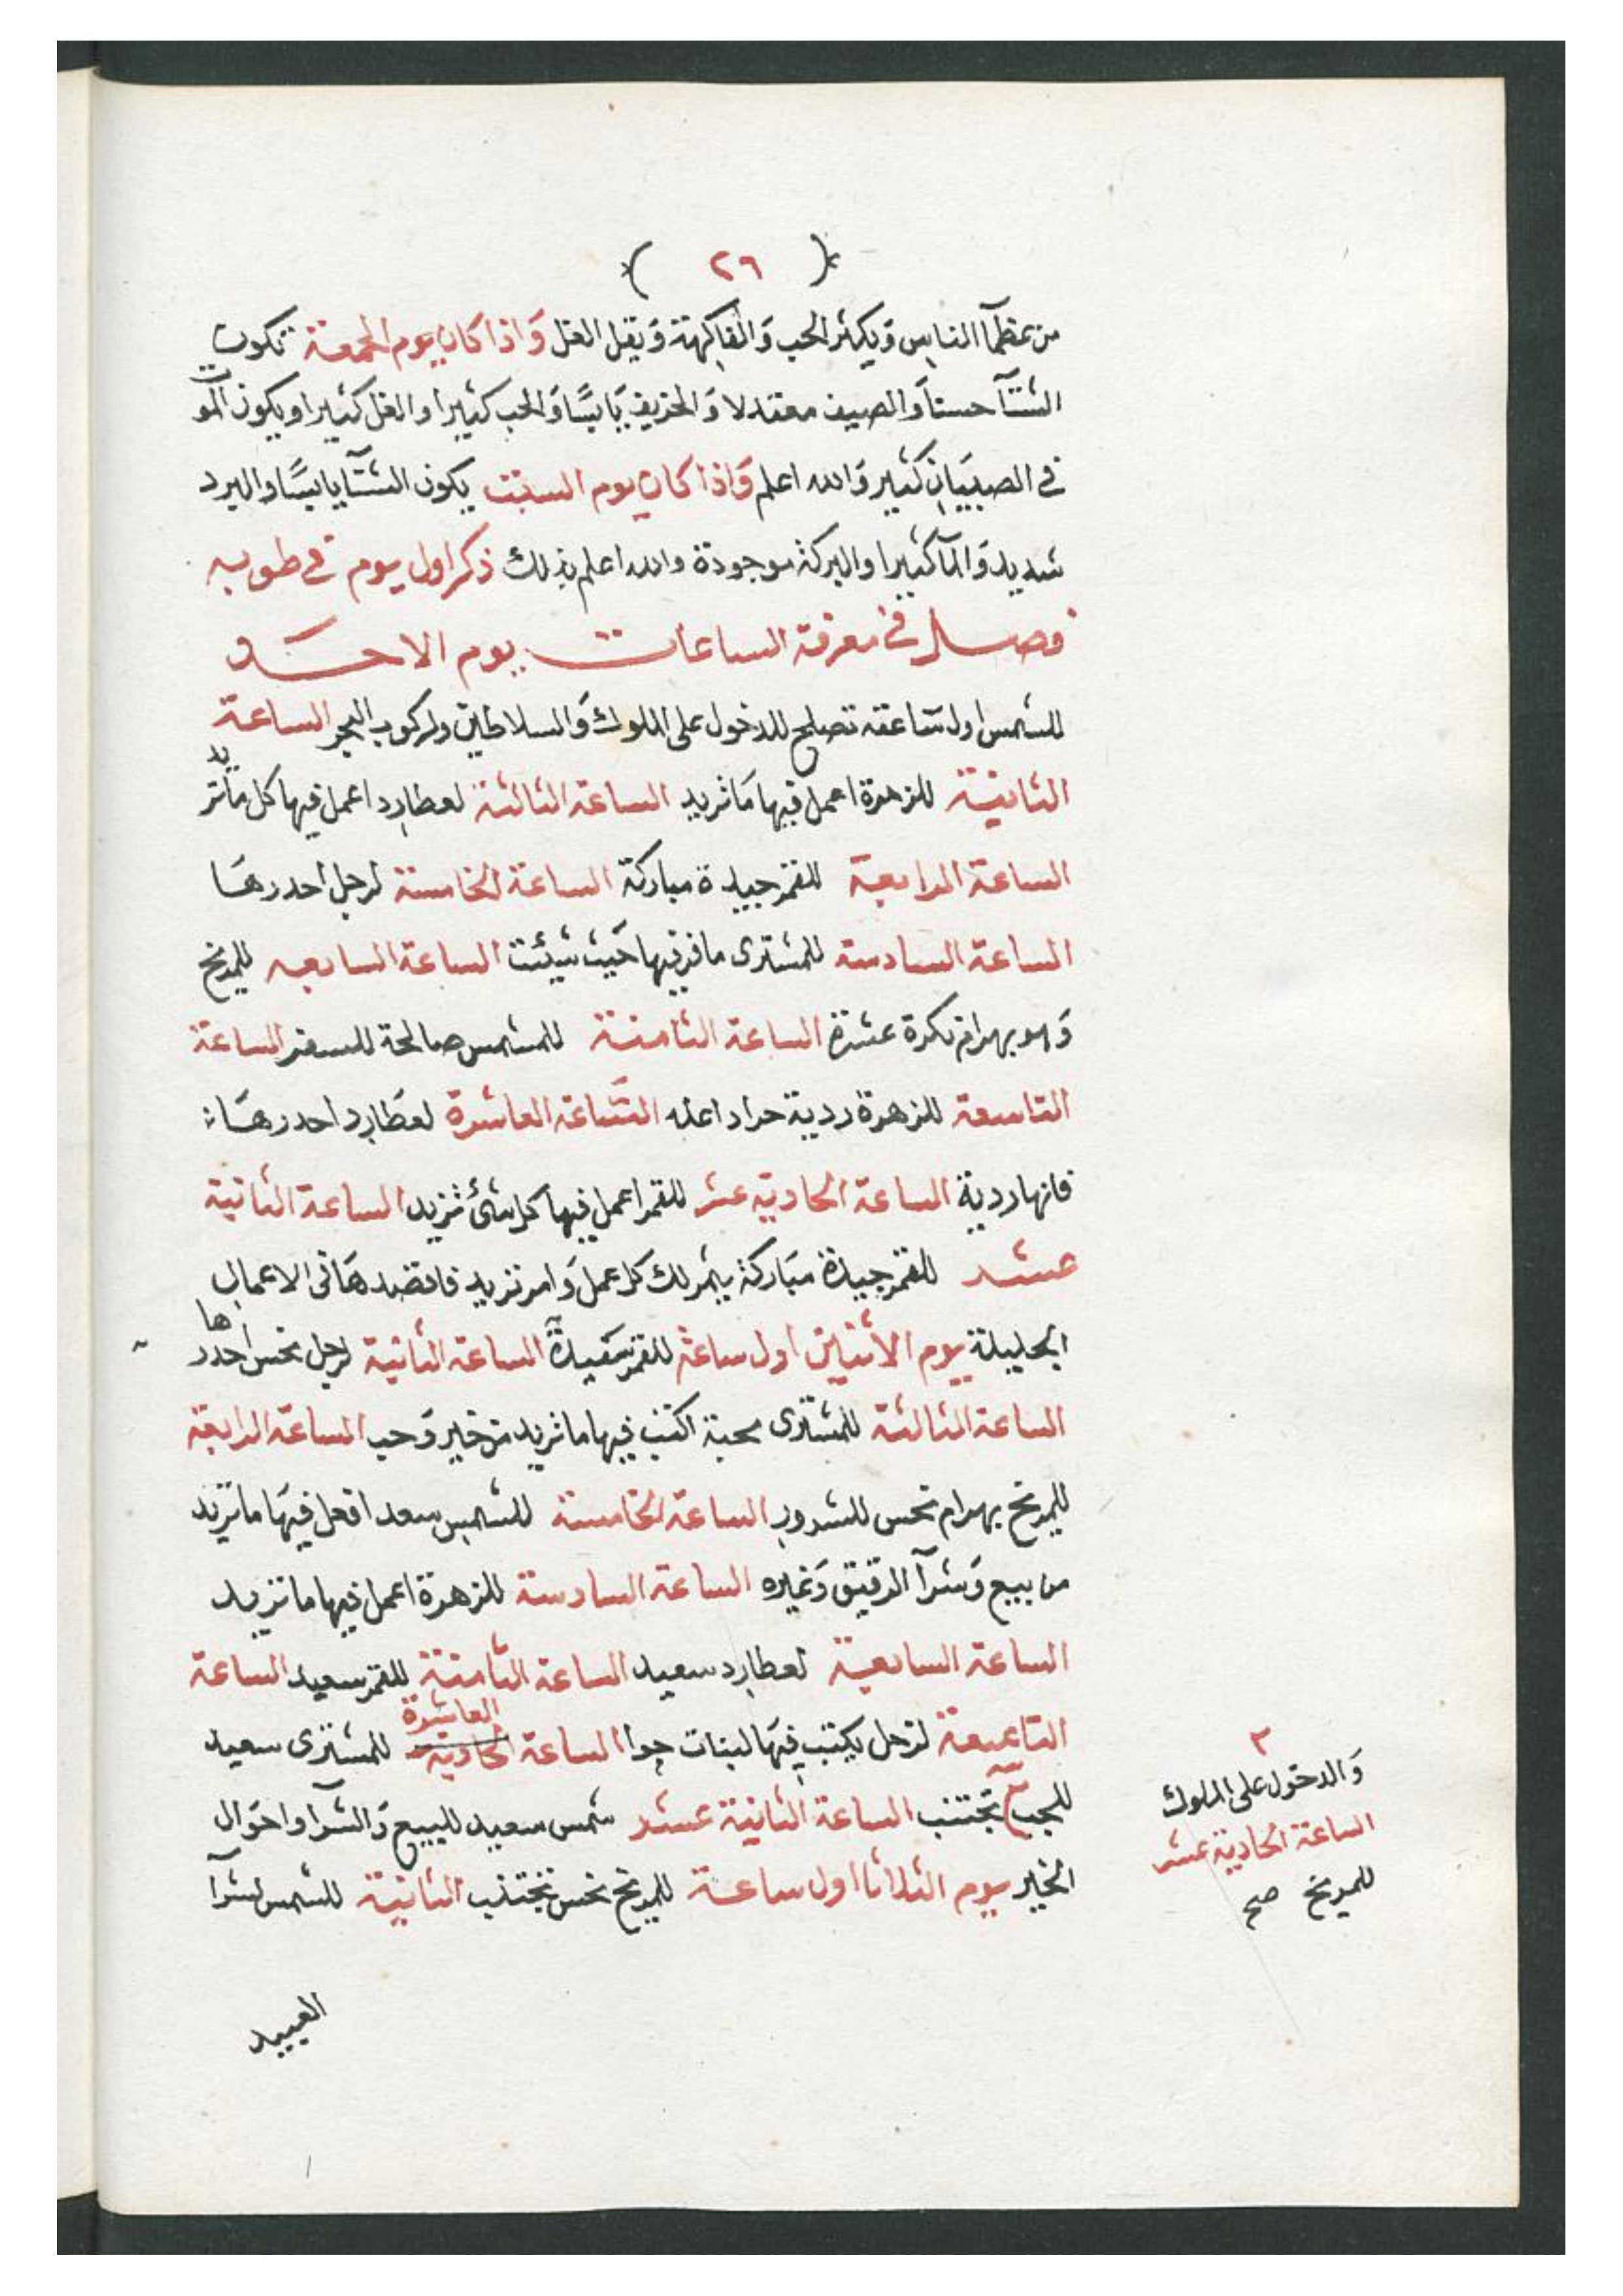 ( ٢٦ )
من عظمآ الناس وَيكثر الحب وَالفاكهة وَيقل العل وَاذا كان يوم الجمعة تكون
الشتآ حسنًا وَالصيف معتدلا وَالخريف يَابسًا وَالحب كثيرا والعل كثيرا ويكون الموت
في الصبيَان كثير وَالله اعلم وَاذا كان يوم السبت يكون الشتآ يابسًا والبرد
شديد وَالمآ كثيرا والبركة موجودة والله اعلم بذلك ذكر اول يوم في طوبه
فصل في معرفة الساعات يوم الاحد
للشمس اول سَاعته تصلح للدخول على الملوك وَالسلاطين ولركوب البحر الساعة
الثانية للزهرة اعمل فيها مَا تريد الساعة الثالثة لعطارد اعمل فيها كل ما تريد
الساعة الرابعة للقمر جيدة مباركة الساعة الخامسة لزحل احدرهَا
الساعة السادسة للمشترى سافر فيها حَيث شيئت الساعة السابعه للمريخ
وَهو بهرام نكرة عشرة الساعة الثامنة للشمس صالحة للسفر الساعة
التاسعة للزهرة ردية حداد اعله السَّاعة العاشرة لعطَارد احدرهَا
فانها ردية الساعة الحادية عشر للقمر اعمل فيها كل شئ تريد الساعة الثانية
عشر للقمر جيدة مبَاركة يتم لك كل عمل وَامر تريد فاقصدهَا في الاعمال
الجليلة يوم الاثنين اول ساعة للقمر سَعيدة الساعة الثانية لزحل نحس احدرها
الساعة الثالثة للمشترى محبة اكتب فيها ما تريد من خير وَحب الساعة الرابعة
للمريخ بهرام نحس للشرور الساعة الخامسة للشمس سعد افعل فيهَا ما تريد
من بيع وَشرآ الدقيق وَغيره الساعة السادسة للزهرة اعمل فيها ما تريد
الساعة السابعة لعطارد سعيد الساعة الثامنة للقمر سعيد الساعة
التاسعة لزحل يكتب فيهَا لبنات حوا الساعة الحادية العاشرة للمشترى سعيد
للحب ٣ تجتنب الساعة الثانية عشر شمس سعيد للبيع وَالشرآ واحوَال
الخير يوم الثلاثا اول ساعة للمريخ نحس تجتنب الثانية للشمس لشرآ
العبيد
٣
وَالدخول على الملوك
الساعة الحادية عشر
للمريخ صح